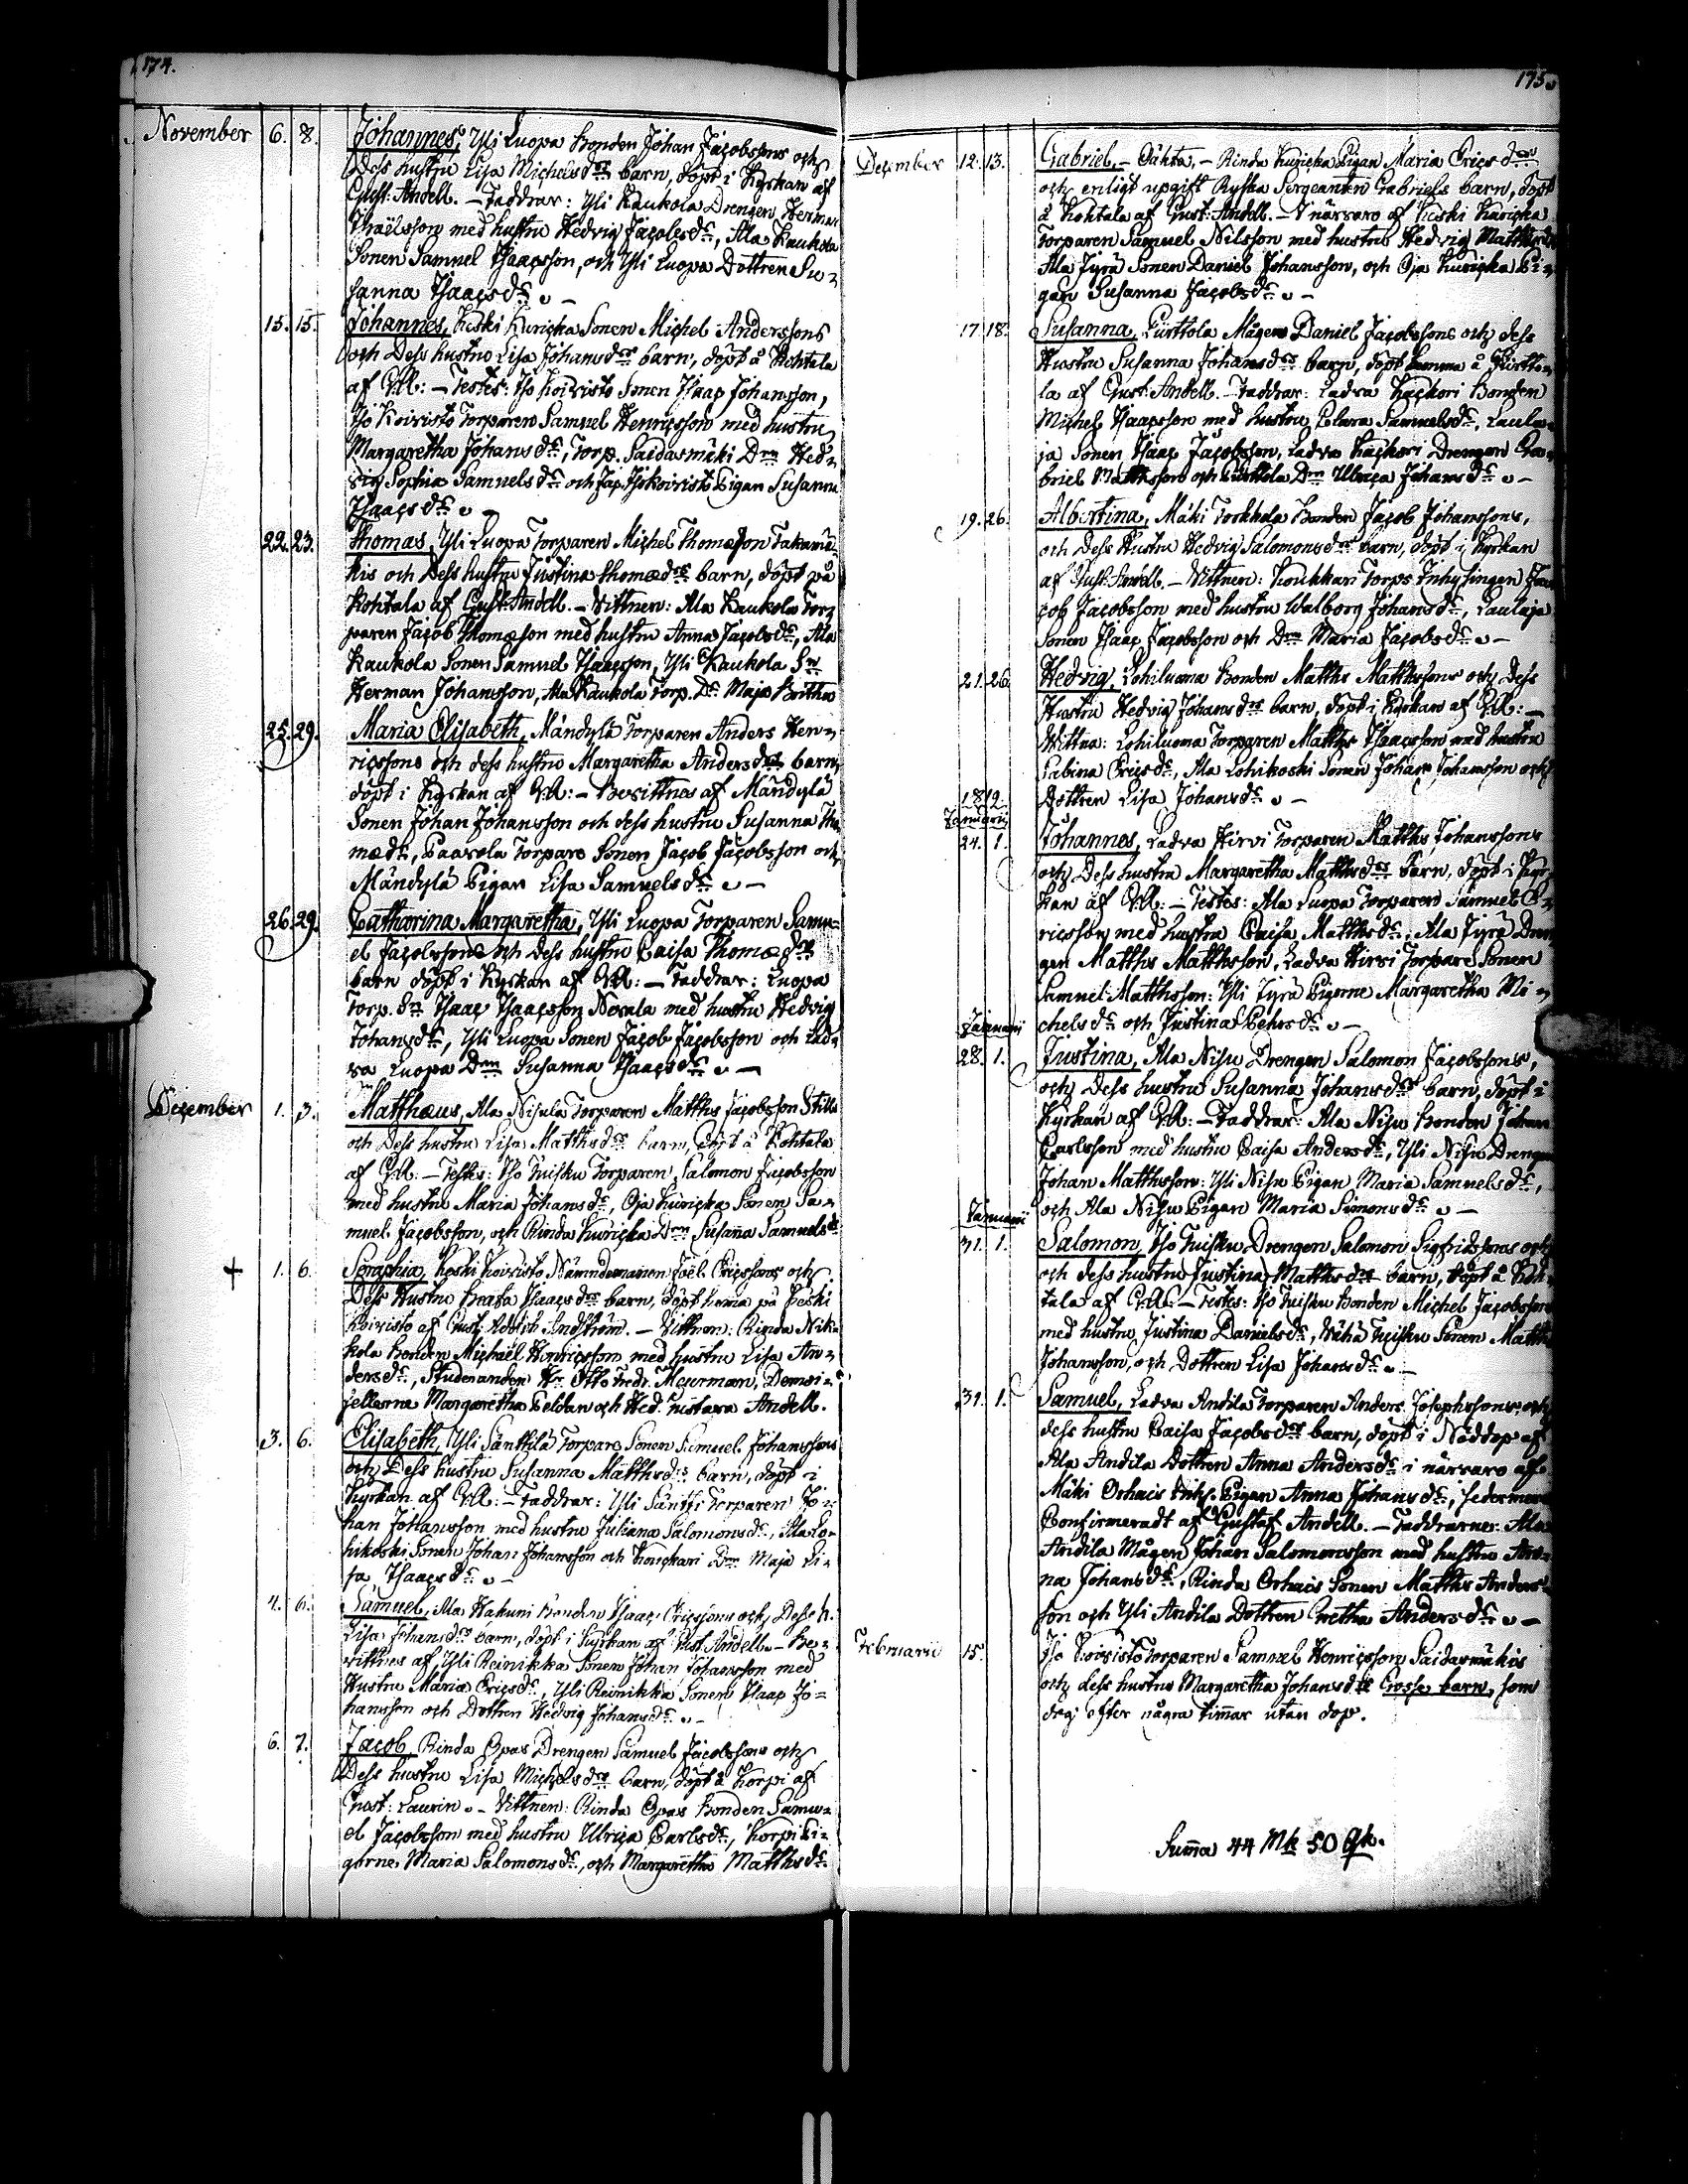 174.
November 6. 8. Johannes, Yli Luopa Bonden Johan Jacobssons och
Dess hustru Lisa Michelsdrs barn, döpt i Kyrkan af
Gust: Andell. – Faddrar: Yli Kaukola Drengen Herman
Israëlsson med hustru Hedvig Jacobsdr, Ala Kaukola
Sonen Samuel Isaacsson, och Yli Luopa Dottren Su-
sanna Isaacsdr. –
15. 15. Johannes, Keski Kuricka Sonen Michel Anderssons
och Dess hustru Lisa Johansdrs barn, döpt å Kohtala
af G.A: – Testes: Iso Koivisto Sonen Isaac Johansson,
Iso Koivisto Torparen Samuel Henricsson med hustru
Margaretha Johansdr, Torp. Saidasmäki Drn Hed-
vig Sophia Samuelsdr och Isokoivisto Pigan Susanna
Isaacsdr. –
22. 23. Thomas, Yli Luopa Torparen Michel Thomasson
och Dess hustru Justina Thomædrs barn, döpt på
Kohtala af Gust: Andell. – Vittnen: Ala Kaukola Tor-
paren Jacob Thomasson med hustru Anna Jacobsdr, Ala
Kaukola Sonen Samuel Isaacsson, Yli Kaukola Sn
Herman Johansson, Ala Kaukola Torp. Dr Maja Britha
25. 29. Maria Elisabeth, Mändylä Torparen Anders Hen-
ricssons och dess hustru Margaretha Andersdrs barn,
döpt i Kyrkan af G.A: – Bevittnas af Mändylä
Sonen Johan Johansson och dess hustru Susanna Tho-
mædr, Paavola Torpare Sonen Jacob Jacobsson och
Mändylä Pigan Lisa Samuelsdr. –
26. 29. Catharina Margaretha, Yli Luopa Torparen Samu-
el Jacobssons och dess hustru Caisa Thomædrs
barn döpt i Kyrkan af G.A: – Faddrar: Luopa
Torp. Sn Isaac Isaacsson Nevala med hustru Hedvig
Johansdr, Yli Luopa Sonen Jacob Jacobsson och Lad-
va Luopa Drn Susanna Isaacsdr. –
December 1. 3. Matthæus, Ala Nisula Torparen Matths Jacobsson Stills
och Dess hustru Lisa Matthsdrs barn, döpt å Kohtala
af G.A: – Testes: Iso Tuisku Torparen Salomon Jacobsson
med hustru Maria Johansdr, Oja Kuricka Sonen Sa-
muel Jacobsson, och Rinda Kuricka Drn Susanna Samuelsdr
+ 1. 6. Seraphia, Keski Koivisto Nämndemannen Joël Ericssons och
Dess Hustru Beata Isaacsdrs barn, döpt hema på Keski
Koivisto af Gust: Adolph Lindström. – Vittnen: Rinda Nik-
kola Bonden Michaël Henricsson med hustru Lisa An-
dersdr, Studeranden Hr Otto Fredr. Meurman, Demoi-
sellerna Margaretha Peldan och Hed. Gustava Andell.
3. 6. Elisabeth, Yli Sänttilä Torpare Sonen Samuel Johanssons
och Dess hustru Susanna Matthsdrs barn, döpt i
Kyrkan af G.A: – Faddrar: Yli Säntti Torparen Jo-
han Johansson med hustru Juliana Salomonsdr, Ala Lo-
hikoski Sonen Johan Johansson och Drn Maja Li-
sa Isaacsdr. –
4. 6. Samuel, Ala Hakuni Bonden Isaac Ericssons och Dess h.
Lisa Johansdrs barn, döpt i Kyrkan af Gust. Andell. – Be-
vittnes af Yli Reinikka Sonen Johan Johansson med
Hustru Maria Ericsdr, Yli Reinikka Sonen Isaac Jo-
hansson och Dottren Hedvig Johansdr. –
6. 7. Jacob, Rinda Opas Drengen Samuel Jacobssons och
Dess hustru Lisa Michelsdrs barn, döpt å Korpi af
Gust: Laurin. – Vittnen: Rinda Opas Bonden Samu-
el Jacobsson med hustru Ulrica Carlsdr, Korpi Pi-
gorne Maria Salomonsdr, och Margaretha Matthsdr.
175.
December 12. 13. Gabriel, – Oäkta, – Rinda Kuricka Pigan Maria Ericsdrs
och enligt upgift Ryska Sergeanten Gabriels barn, döpt
å Kohtala af Gust: Andell. – I närvaro af Keski Kuricka
Torparen Samuel Nilsson med hustru Hedvig Matthsdr,
Ala Jyrä Sonen Daniel Johansson, och Oja Kuricka Pi-
gan Susanna Jacobsdr. –
17. 18. Susanna, Purttola Mågen Daniel Jacobssons och dess
Hustru Susanna Johansdrs barn, döpt hemma å Purtto-
la af Gust: Andell. – Faddrar: Ladva Kackori Bonden
Michel Isaacsson med hustru Clara Samuelsdr, Laula-
ja Sonen Isaac Jacobsson, Ladva Kackori Drengen Ga-
briel Matthsson och Purttola Drn Ulrica Johansdr. –
19. 26. Albertina, Mäki Torkkola Bonden Jacob Johanssons,
och Dess Hustru Hedvig Salomonsdrs barn, döpt i Kyrkan
af Gust: Andell. – Vittnen: Koukkari Torps Inhysingen Ja-
cob Jacobsson med hustru Walborg Johansdr, Laulaja
Sonen Isaac Jacobsson och Drn Maria Jacobsdr. –
21. 26. Hedvig, Lohiluoma Bonden Matths Matthssons och Dess
Hustru Hedvig Johansdrs barn, döpt i Kyrkan af G.A: –
Vittna: Lohiluoma Torparen Matths Isaacsson med hustru
Sabina Ericsdr, Ala Lohikoski Sonen Johan Johansson och
Dottren Lisa Johansdr. –
1812.
Januarii
24. 1. Johannes, Ladva Hirvi Torparen Matths Johanssons
och Dess hustru Margaretha Matthsdrs barn, döpt i Kyr-
kan af G.A: – Testes: Ala Luopa Torparen Samuel E-
ricsson med hustru Caisa Matthsdr, Ala Jyrä Dren-
gen Matths Matthsson, Ladva Hirvi Torpare Sonen
Samuel Matthsson: Yli Jyrä Pigorne Margaretha Mi-
chelsdr och Justina Pehrsdr. –
Januarii
28. 1. Justina, Ala Nisu Drengen Salomon Jacobssons,
och Dess hustru Susanna Johansdrs barn, döpt i
Kyrkan af G.A: – Faddrar: Ala Nisu Bonden Johan
Carlsson med hustru Caisa Andersdr, Yli Nisu Drengen
Johan Matthsson: Yli Nisu Pigan Maria Samuelsdr,
och Ala Nisu Pigan Maria Simonsdr. –
Januarii
31. 1. Salomon, Iso Tuisku Drengen Salomon Sigfridssons och
och dess hustru Justina Matthsdrs barn, döpt å Koh-
tala af G.A: – Testes: Iso Tuisku Bonden Michel Jacobsson
med hustru Justina Danielsdr, Vähä Tuisku Sonen Matths
Johansson, och Dottren Lisa Johansdr. –
31. 1. Samuel, Ladva Andila Torparen Anders Josephssons och
dess hustru Caisa Jacobsdrs barn, döpt i Nöddop af
Ala Andila Dottren Anna Andersdr i närvaro af
Mäki Orhais Inhs. Pigan Anna Johansdr, sedermera
Confirmeradt af Gustaf Andell. – Faddrarne: Ala
Andila Mågen Johan Salomonsson med hustru An-
na Johansdr, Rinda Orhais Sonen Matths Anders-
son och Yli Andila Dottren Gretha Andersdr. –
Februarii 15. Iso Koivisto Torparen Samuel Henricsson Saidasmäkis
och dess hustru Margaretha Johansdrs Gosse barn, som
dog efter några timmar utan dop.
Suma 44 Mk 50 qk.